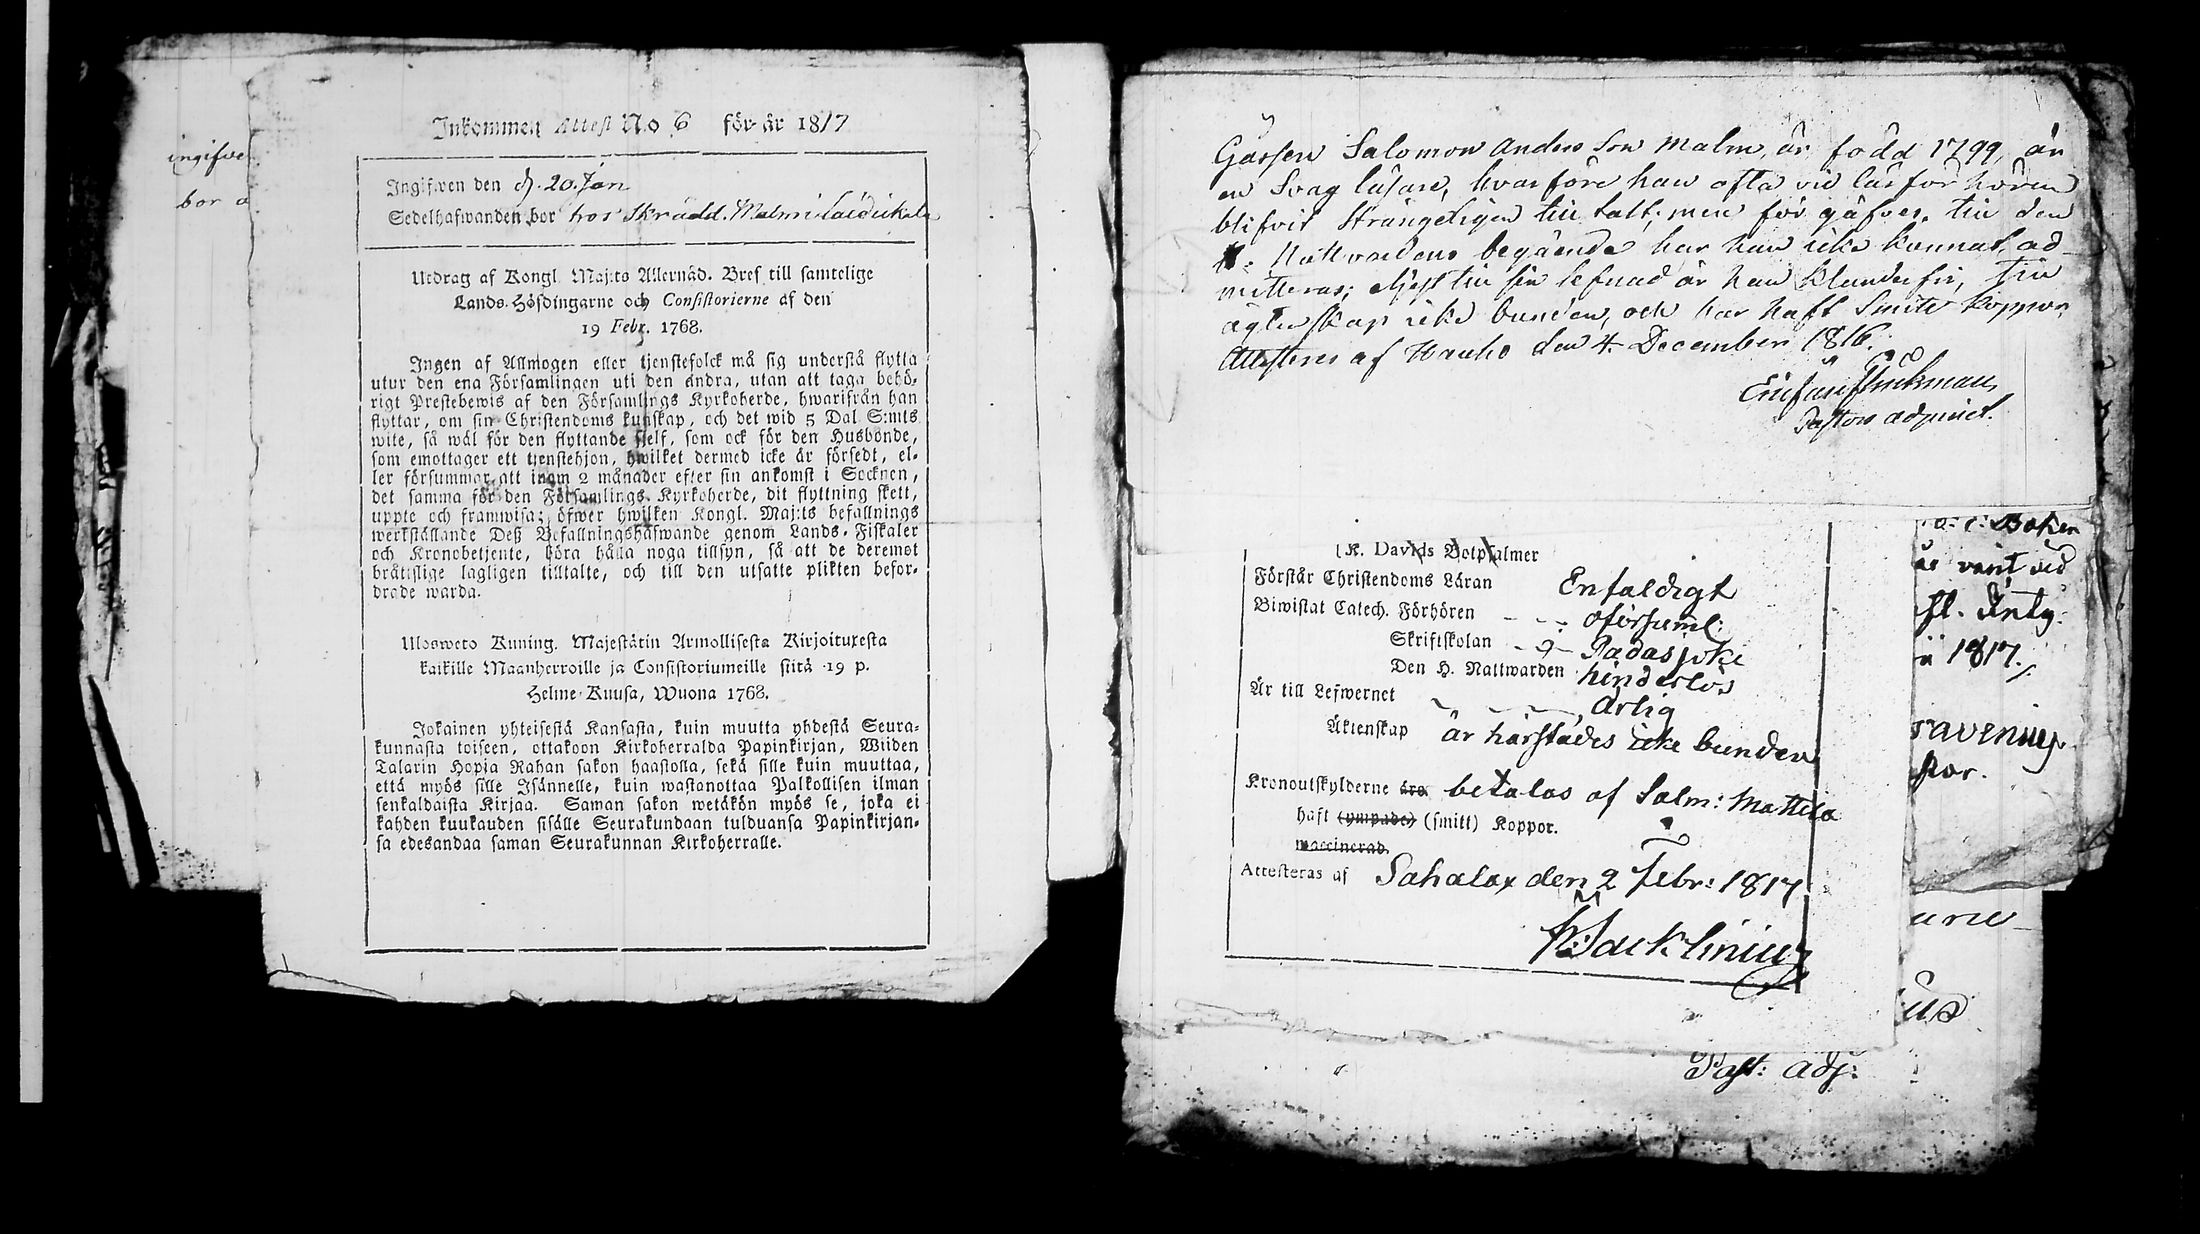 ingifve
bor
Inkommen Attest No 6 för år 1817
Ingifwen den d. 20. Jan
Sedelhafwanden bor hos Skrädd. Malm i
Utdrag af Kongl. Maj:ts Allernåd. Bref till samtelige
Lands-Höfdingarne och Consistorierne af den
19 Febr. 1768.
Ingen af Allmogen eller tjenstefolck må sig understå flytta
utur den ena Församlingen uti den andra, utan att taga behö-
rigt Prestebewis af den Församlings Kyrkoherde, hwarifrån han
flyttar, om sin Christendoms kunskap, och det wid 5 Dal. S:mts
wite, så wäl för den flyttande sjelf, som ock för den Husbonde,
som emottager ett tjenstehjon, hwilket dermed icke är försedt, el-
ler försummar att inom 2 månader efter sin ankomst i Socknen,
det samma för den Församlings Kyrkoherde, dit flyttning skett,
uppte och framwisa; öfwer hwilken Kongl. Maj:ts befallnings
werkställande Deß Befallningshafwande genom Lands-Fiskaler
och Kronobetjente, böra hålla noga tillsyn, så att de deremot
bråttslige lagligen tilltalte, och till den utsatte plikten befor-
drade warda.
Ulosweto Kuning. Majestätin Armollisesta Kirjoituxesta
kaikille Maanherroille ja Consistoriumeille siitä 19 p.
Helme-Kuusa, Wuona 1768.
Jokainen yhteisestä Kansasta, kuin muutta yhdestä Seura-
kunnasta toiseen, ottakoon Kirkoherralda Papinkirjan, Wiiden
Talarin Hopia Rahan sakon haastolla, sekä sille kuin muuttaa,
että myös sille Isännelle, kuin wastanottaa Palkollisen ilman
senkaldaista Kirjaa. Saman sakon wetäkön myös se, joka ei
kahden kuukauden sisälle Seurakundaan tulduansa Papinkirjan-
sa edesandaa saman Seurakunnan Kirkoherralle.
Gossen Salomon Anders Son Malm, är född 1799, är
en Svag läsare, hvarföre han ofta vid läsförhören
blifvit strängeligen till talt; men förgäfves. till den
H: Nattvardens begående har han icke kunnat ad-
mitteras; till sin lefnad är han klanderfri, till
ägtenskap icke bunden, och har haft Smitt Koppor,
Attesteras af Hauho den 4 December 1816.
Pastors adjunct.
K. Davids Botpsalmer
Förstår Christendoms Läran Enfaldigt
Biwistat Catech. Förhören oförsuml:
Skriftskolan Padasjoki
Den H. Nattwarden hinderlös
Är till Lefwernet Ärlig
Äktenskap är härstädes icke bunden
Kronoutskylderne äro betalas af Salm: Mattila
haft (ympade) (smitt) Koppor.
waccinerad.
Attesteras af Sahalax den 2 Febr: 1817
Boken
varit vid
1817.
Past: adj: